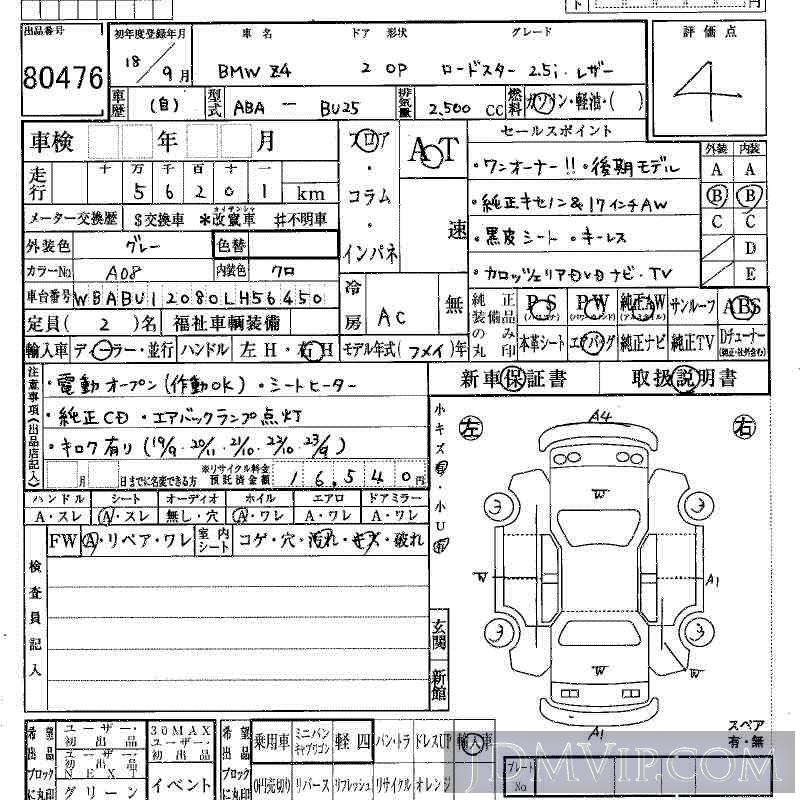 円
出品番号
80476
初年度登録年月
18/9月
車名 ドア 形状 グレード
BMW Z4 2 OP ロードスター 2.5i レザー
評価点
4
車歴 (自) 型式 ABA - BU25 排気量 2,500 CC 燃料 ガソリン・軽油・( )
車検 年 月
走行 十 万 千 百 十 一
5 6 2 0 1 km
メーター交換歴 $交換車 *改竄車 #不明車
外装色 グレー 色替
カラーNo. A08 内装色 クロ
車台番号 WBABU12080LH56450
定員 (2)名 福祉車輌装備
輸入車 ディーラー・並行 ハンドル 左H・右H モデル年式(フメイ)年
フロア・コラム・インパネ
AOT
速
冷房 AC 無
セールスポイント
・ワンオーナー!! ・後期モデル
・純正キセノン&17インチAW
・黒皮シート ・キーレス
・カロッツェリアDVDナビ・TV
外装 内装
A A
B B
C C
D
E
純正装備品のみ丸印
PS (パワステ) PW (パワーウインド) 純正AW (アルミホイル) サンルーフ ABS
本革シート エアバッグ 純正ナビ 純正TV Dチューナー (純正・社外含む)
新車保証書 取扱説明書
注意事項(出品店記入)
・電動オープン(作動OK) ・シートヒーター
・純正CD ・エアバックランプ点灯
・キロク有り(19/9. 20/11. 21/10. 22/10. 23/9)
月 日までに名変できる方 ※リサイクル料金 預託済金額 16,540円
ハンドル シート オーディオ ホイル エアロ ドアミラー
A・スレ A・スレ 無し・穴 A・ワレ A・ワレ A・ワレ
FW A・リペア・ワレ 室内シート コゲ・穴・汚れ・キズ・破れ
検査員記入
小キズ有・小U有
左 右
A4
W
3 3
W A1
3 3
W W
A1
玄関
新館
スペア
有・無
希望出品ブロックに丸印
ユーザー・初出品 30MAXユーザー・初出品
ユーザー・初出品NEXT
グリーン イベント
希望出品ブロックに丸印
乗用車 ミニバンキャブワゴン 軽四 バン・トラ ドレスUP 輸入車
0円売切り リバース リフレッシュ リサイクル オレンジ
プレートNo
JDMVIP.COM